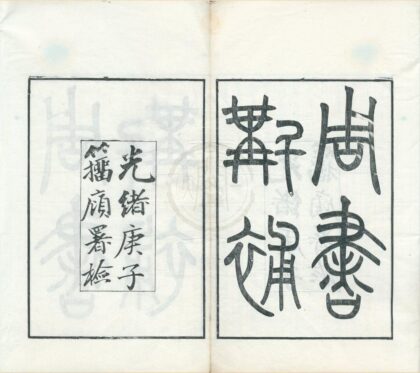 周書
斠補
光緒庚子
籀廎署檢